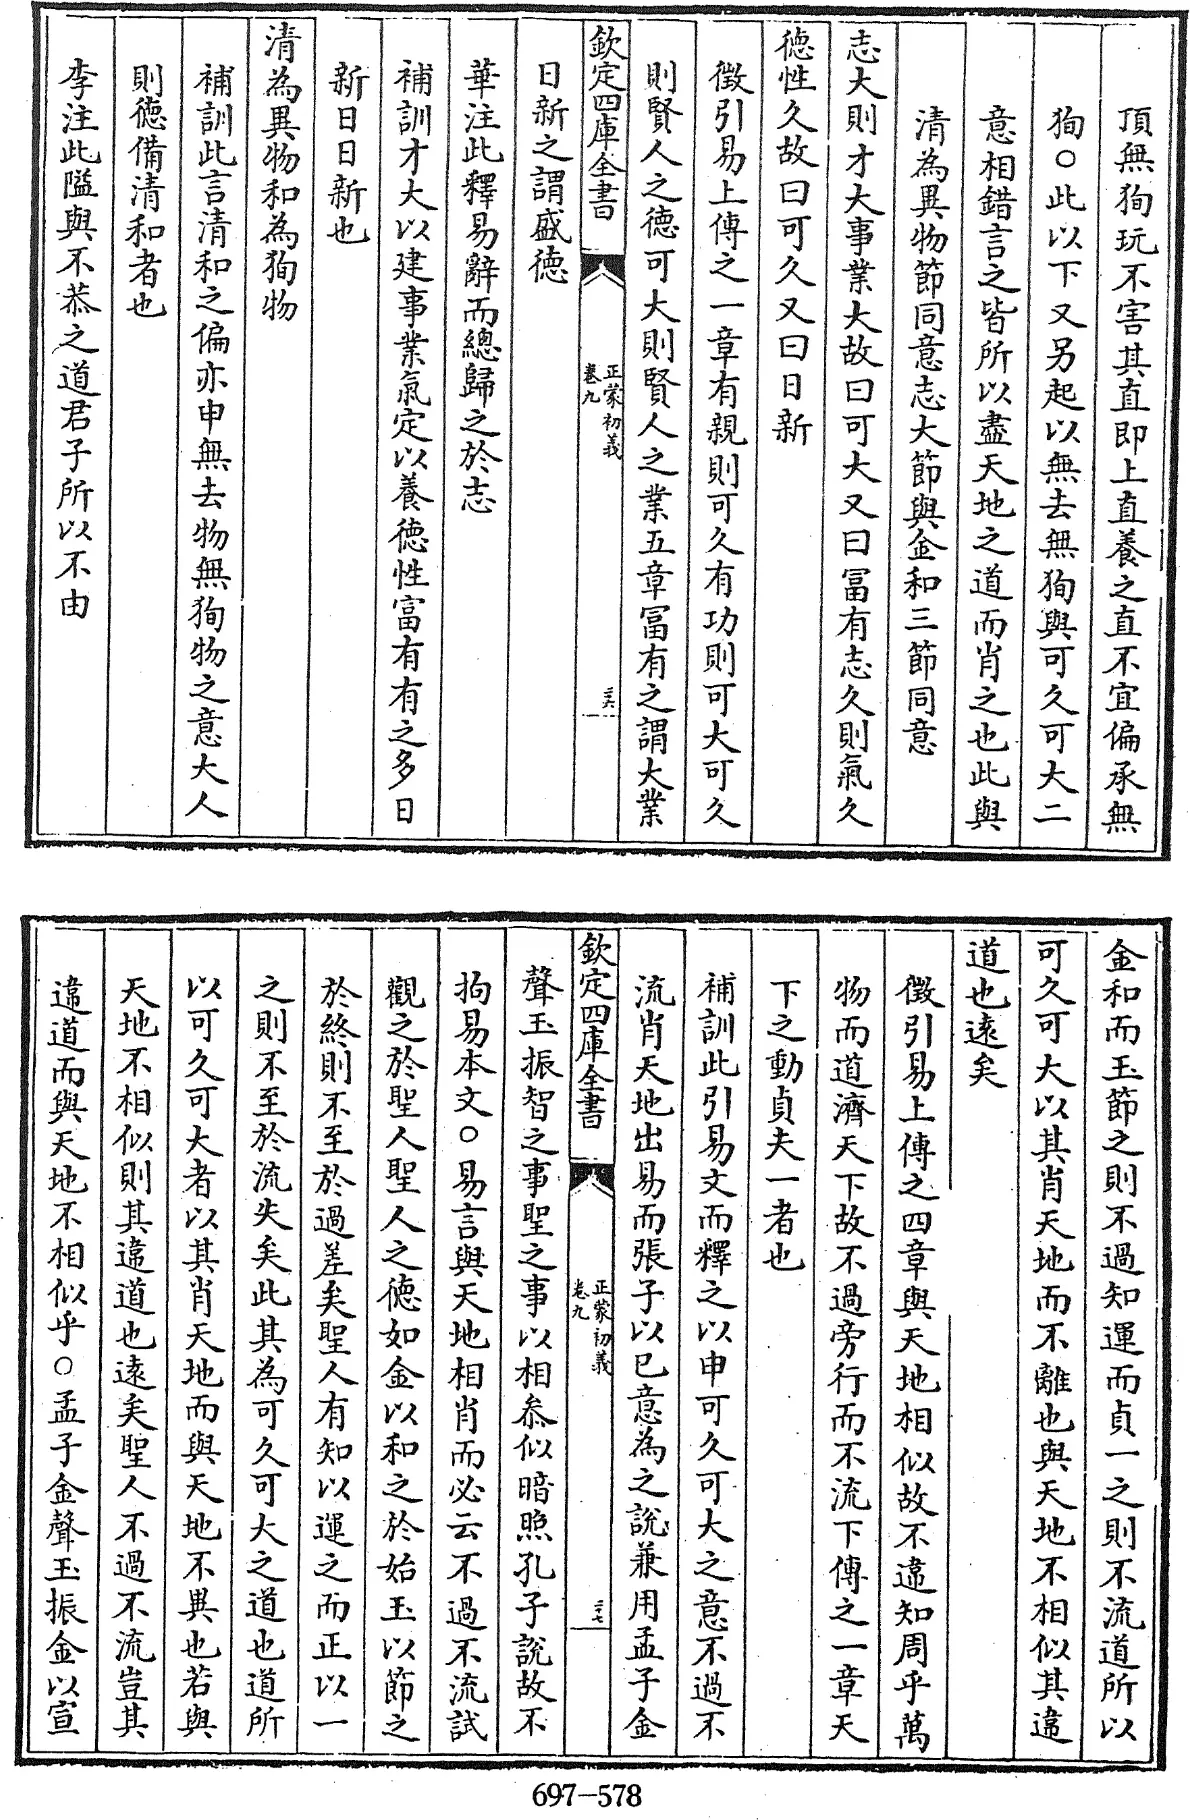 頂無狥玩不害其直即上直養之直不宜偏承無
狥○此以下又另起以無去無狥與可久可大二
意相錯言之皆所以盡天地之道而肖之也此與
清為異物節同意志大節與金和三節同意
志大則才大事業大故曰可大又曰冨有志久則氣久
德性久故曰可久又曰日新
徵引易上傳之一章有親則可久有功則可大可久
則賢人之德可大則賢人之業五章冨有之謂大業
欽定四庫全書
正蒙初義
卷九
三六
日新之謂盛德
華注此釋易辭而總歸之於志
補訓才大以建事業氣定以養德性富有有之多日
新日日新也
清為異物和為狥物
補訓此言清和之偏亦申無去物無狥物之意大人
則德備清和者也
李注此隘與不恭之道君子所以不由
金和而玉節之則不過知運而貞一之則不流道所以
可久可大以其肖天地而不離也與天地不相似其違
道也遠矣
徵引易上傳之四章與天地相似故不違知周乎萬
物而道濟天下故不過旁行而不流下傳之一章天
下之動貞夫一者也
補訓此引易文而釋之以申可久可大之意不過不
流肖天地出易而張子以已意為之說兼用孟子金
欽定四庫全書
正蒙初義
卷九
三七
聲玉振智之事聖之事以相叅似暗照孔子說故不
拘易本文○易言與天地相肖而必云不過不流試
觀之於聖人聖人之德如金以和之於始玉以節之
於終則不至於過差矣聖人有知以運之而正以一
之則不至於流失矣此其為可久可大之道也道所
以可久可大者以其肖天地而與天地不異也若與
天地不相似則其違道也遠矣聖人不過不流豈其
違道而與天地不相似乎○孟子金聲玉振金以宣
697-578